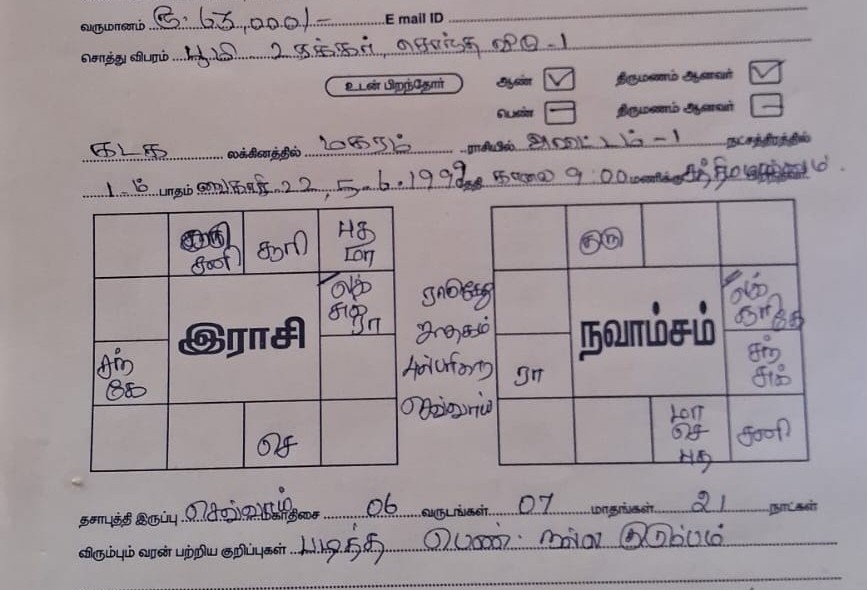 வருமானம் ரூ. 65,000/- E mail ID
சொத்து விபரம் பூமி 2 ஏக்கர், சொந்த வீடு - 1
உடன் பிறந்தோர் ஆண் ✓ திருமணம் ஆனவர் ✓
பெண் – திருமணம் ஆனவர் –
கடக லக்கினத்தில் மகரம் ராசியில் அவிட்டம் - 1 நட்சத்திரத்தில்
1-ம் பாதம் வைகாசி 22, 5.6.1999 தேதி காலை 9:00 மணிக்கு
குரு சனி சூரி புத மா
லக் சுக் ரா
இராசி
சந் கே
செ
ராகுகேது
ஜாதகம்
செவ்வாய்
குரு
லக் சூரி கே
நவாம்சம்
ரா சந் சுக்
மா செ புத சனி
தசாபுத்தி இருப்பு செவ்வாய் மகாதிசை 06 வருடங்கள் 07 மாதங்கள் 21 நாட்கள்
விரும்பும் வரன் பற்றிய குறிப்புகள் படித்த பெண். நல்ல குடும்பம்